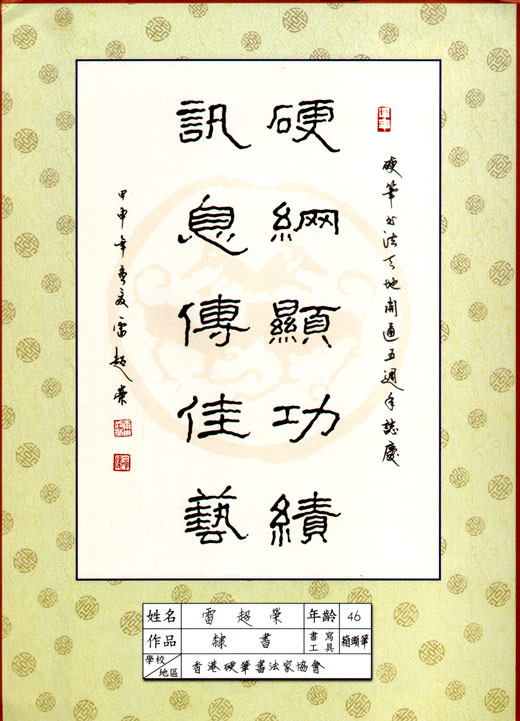 硬筆書法天地開通五週年誌慶
硬網顯功績
訊息傳佳藝
甲申年夏雷超榮
姓名 雷超榮 年齡 46
作品 隸書 書寫工具 箱頭筆
學校/地區 香港硬筆書法家協會